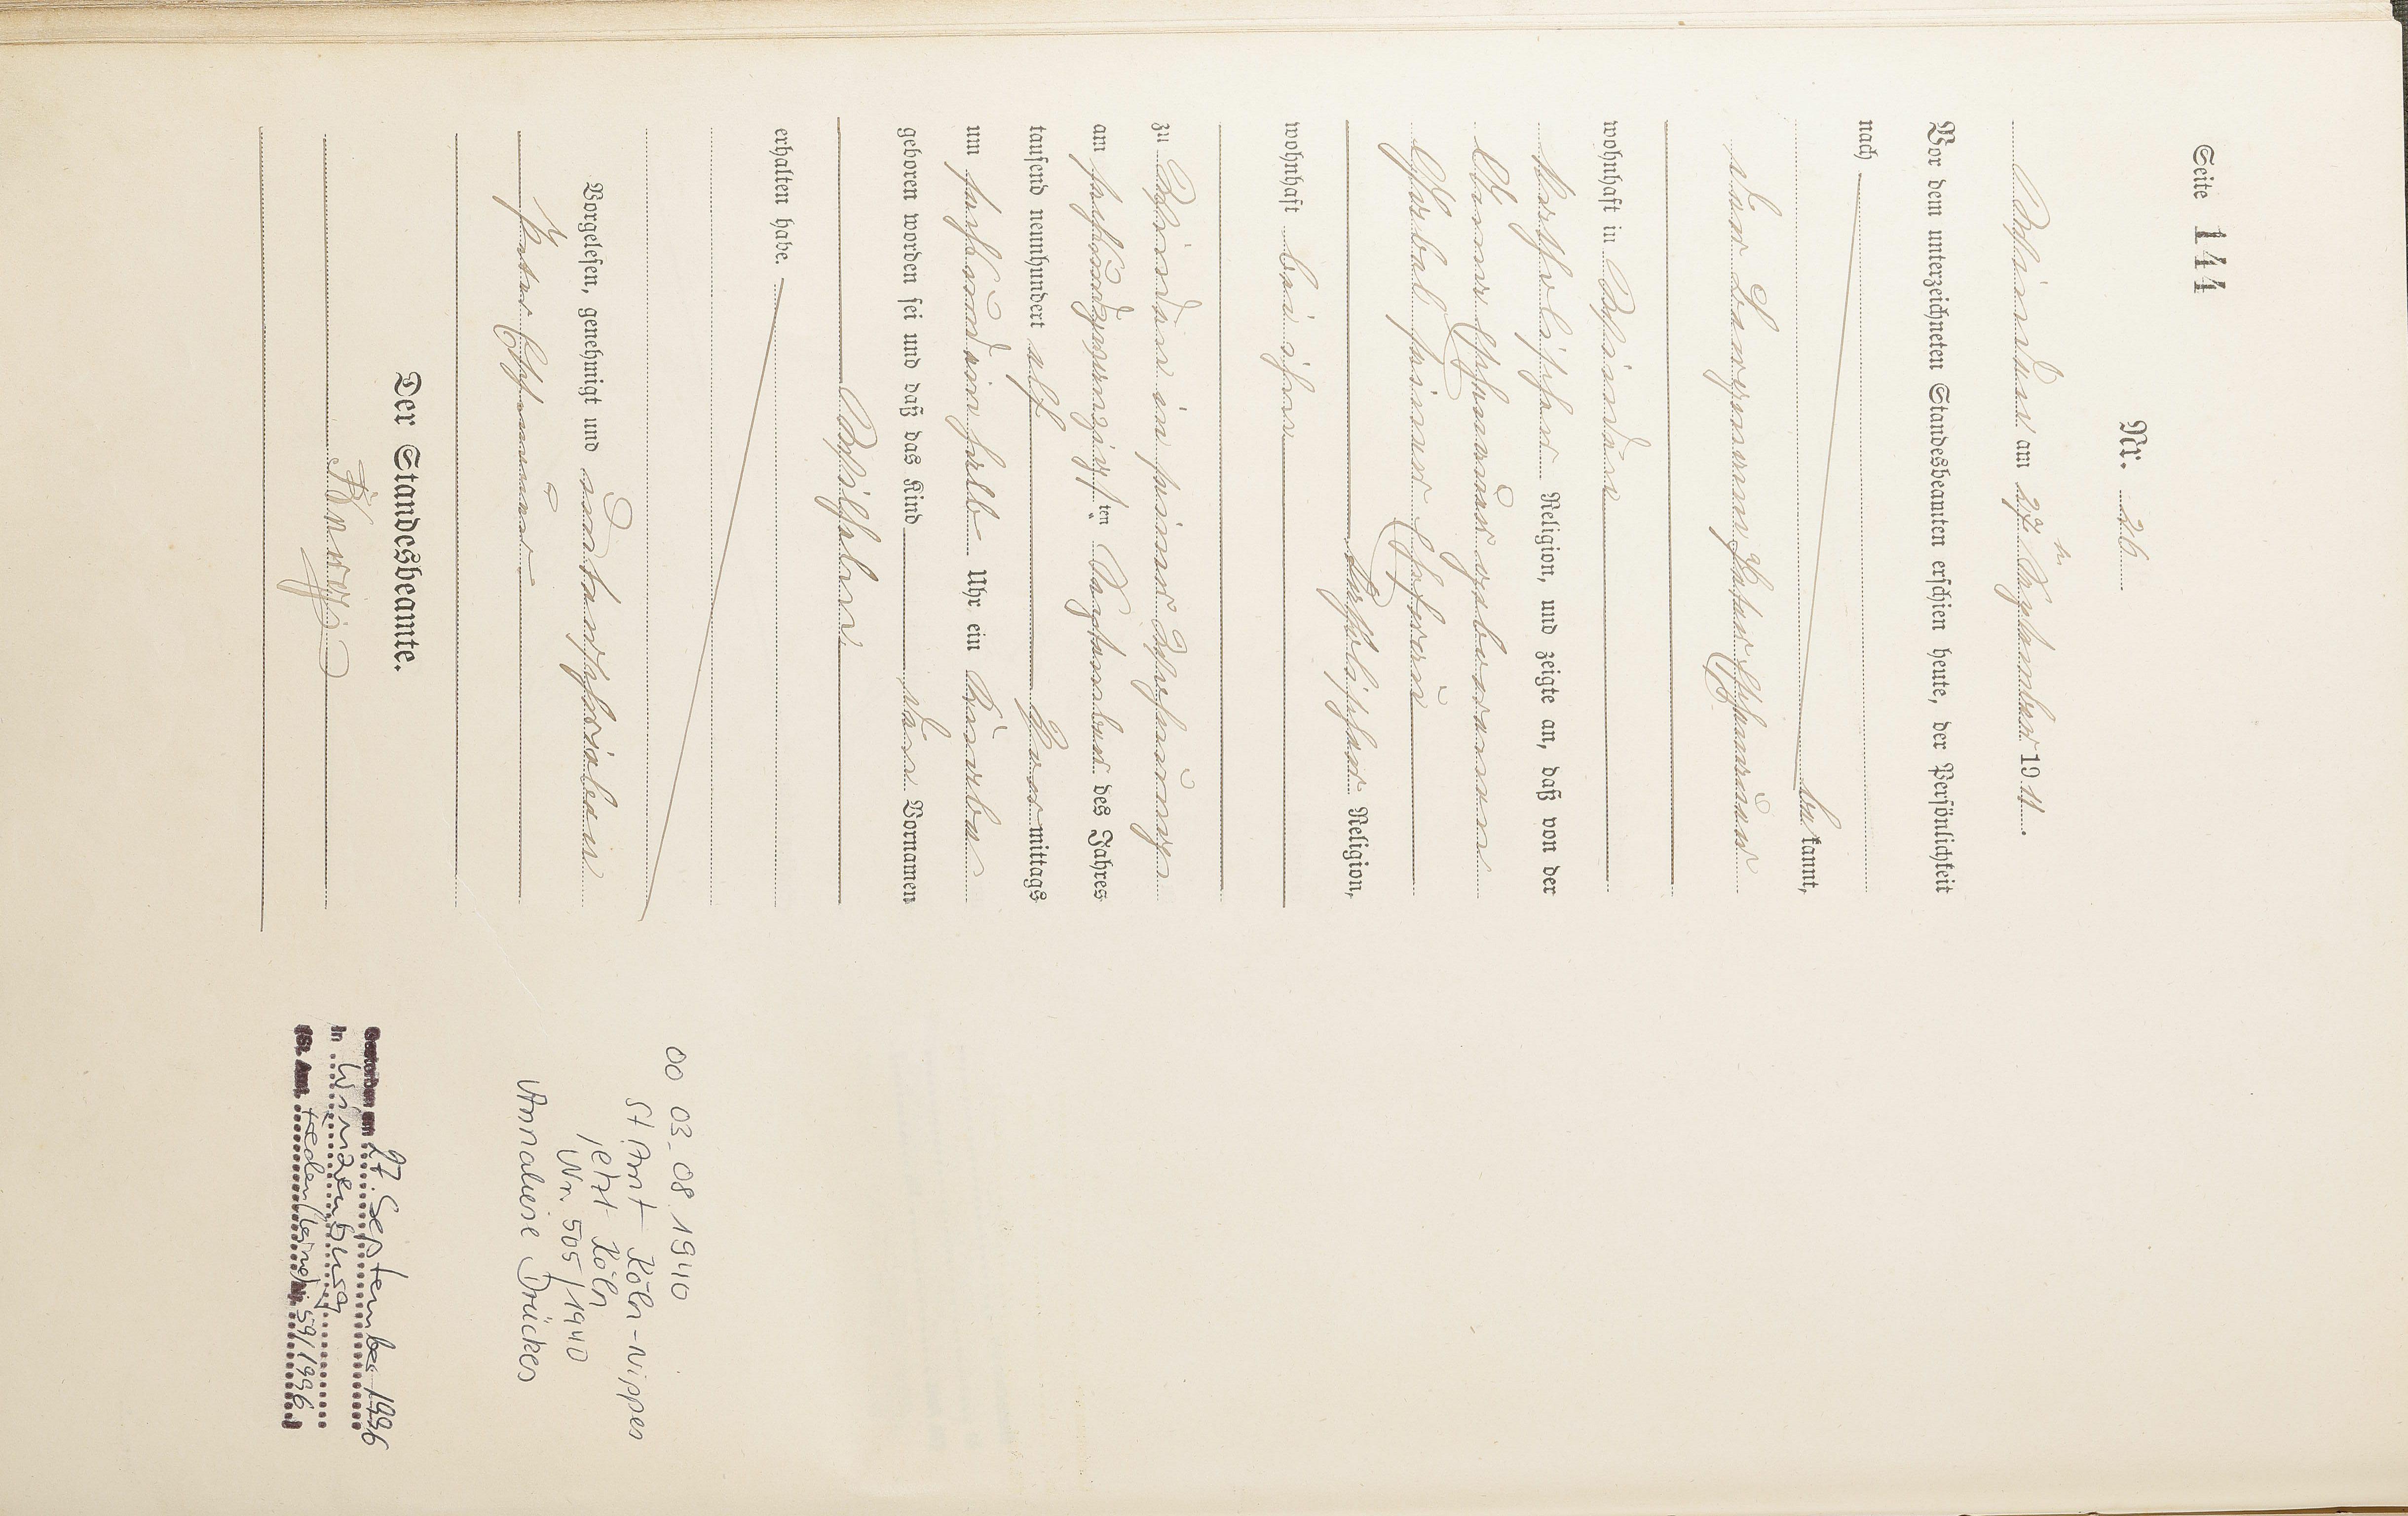 Seite 144
Nr. 26
am 27ten September 1911.
Vor dem unterzeichneten Standesbeamten erschien heute, der Persönlichkeit
nach
be kannt,
der Bergmann Peter
wohnhaft in
katholischer Religion, und zeigte an, daß von der
geborenen
seiner Ehefrau
katholischer Religion,
wohnhaft bei ihm
zu in seiner Behausung
am sechsundzwanzigsten September des Jahres
tausend neunhundert elf Vor mittags
um fünf und ein halb Uhr ein Knabe
geboren worden sei und daß das Kind den Vornamen
Wilhelm
erhalten habe.
Vorgelesen, genehmigt und unterschrieben
Peter
Der Standesbeamte.
OO 03.08.1940
St.Amt Köln-Nippes
jetzt Köln
Nr. 505/1940
Annaliese Drückes
Gestorben am 27. September 1996
in Winzenburg
(St. Amt Freden (Leine) Nr. 59/1996)